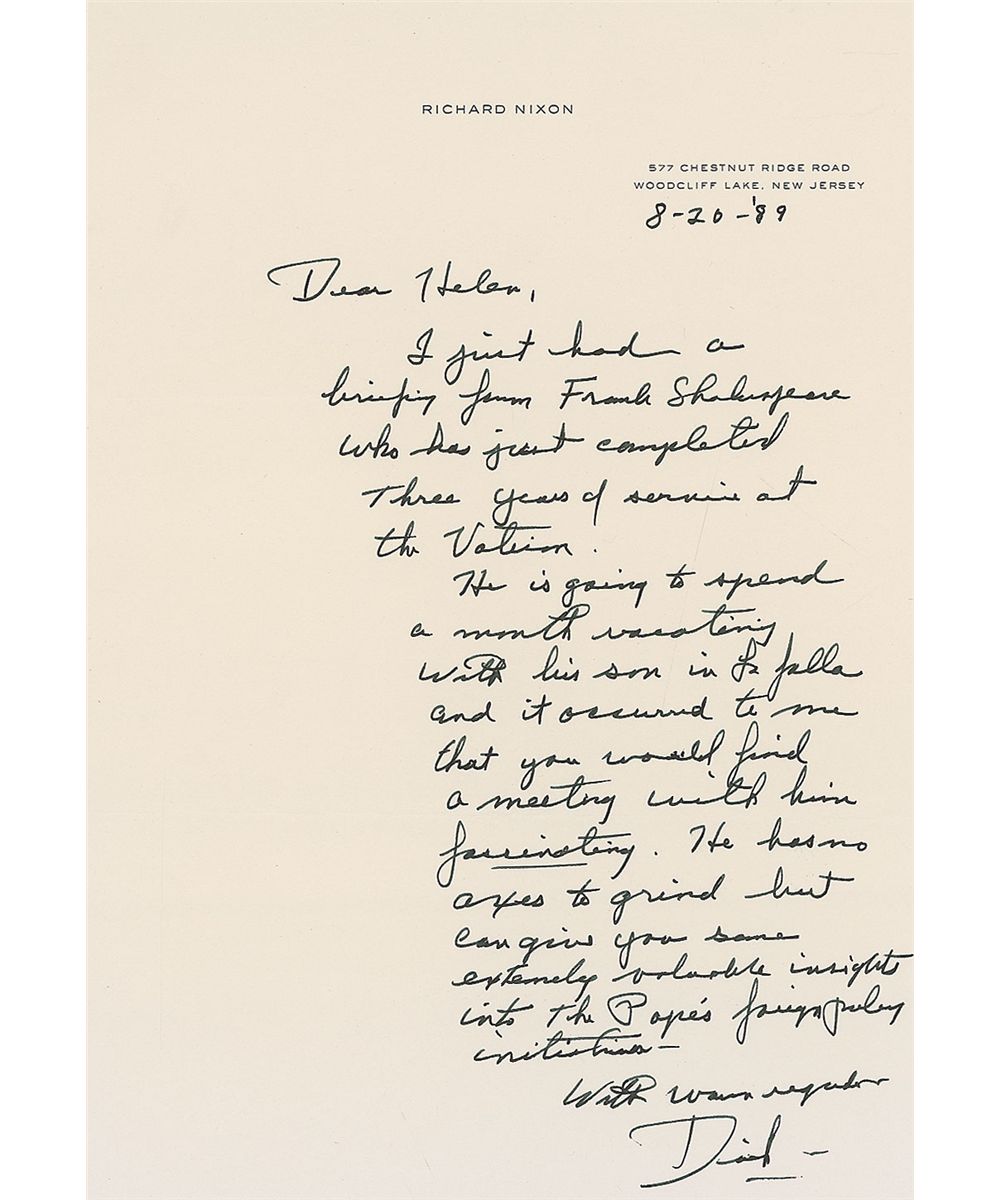 RICHARD NIXON
577 CHESTNUT RIDGE ROAD
WOODCLIFF LAKE, NEW JERSEY
8-20-'89
Dear Helen,
I just had a
briefing from Frank Shakespeare
who has just completed
three years of service at
the Vatican.
He is going to spend
a month vacationing
with his son in La Jolla
and it occurred to me
that you would find
a meeting with him
fascinating. He has no
axes to grind but
can give you some
extremely valuable insights
into the Pope's foreign policy
initiatives—
With warm regards
Dick —